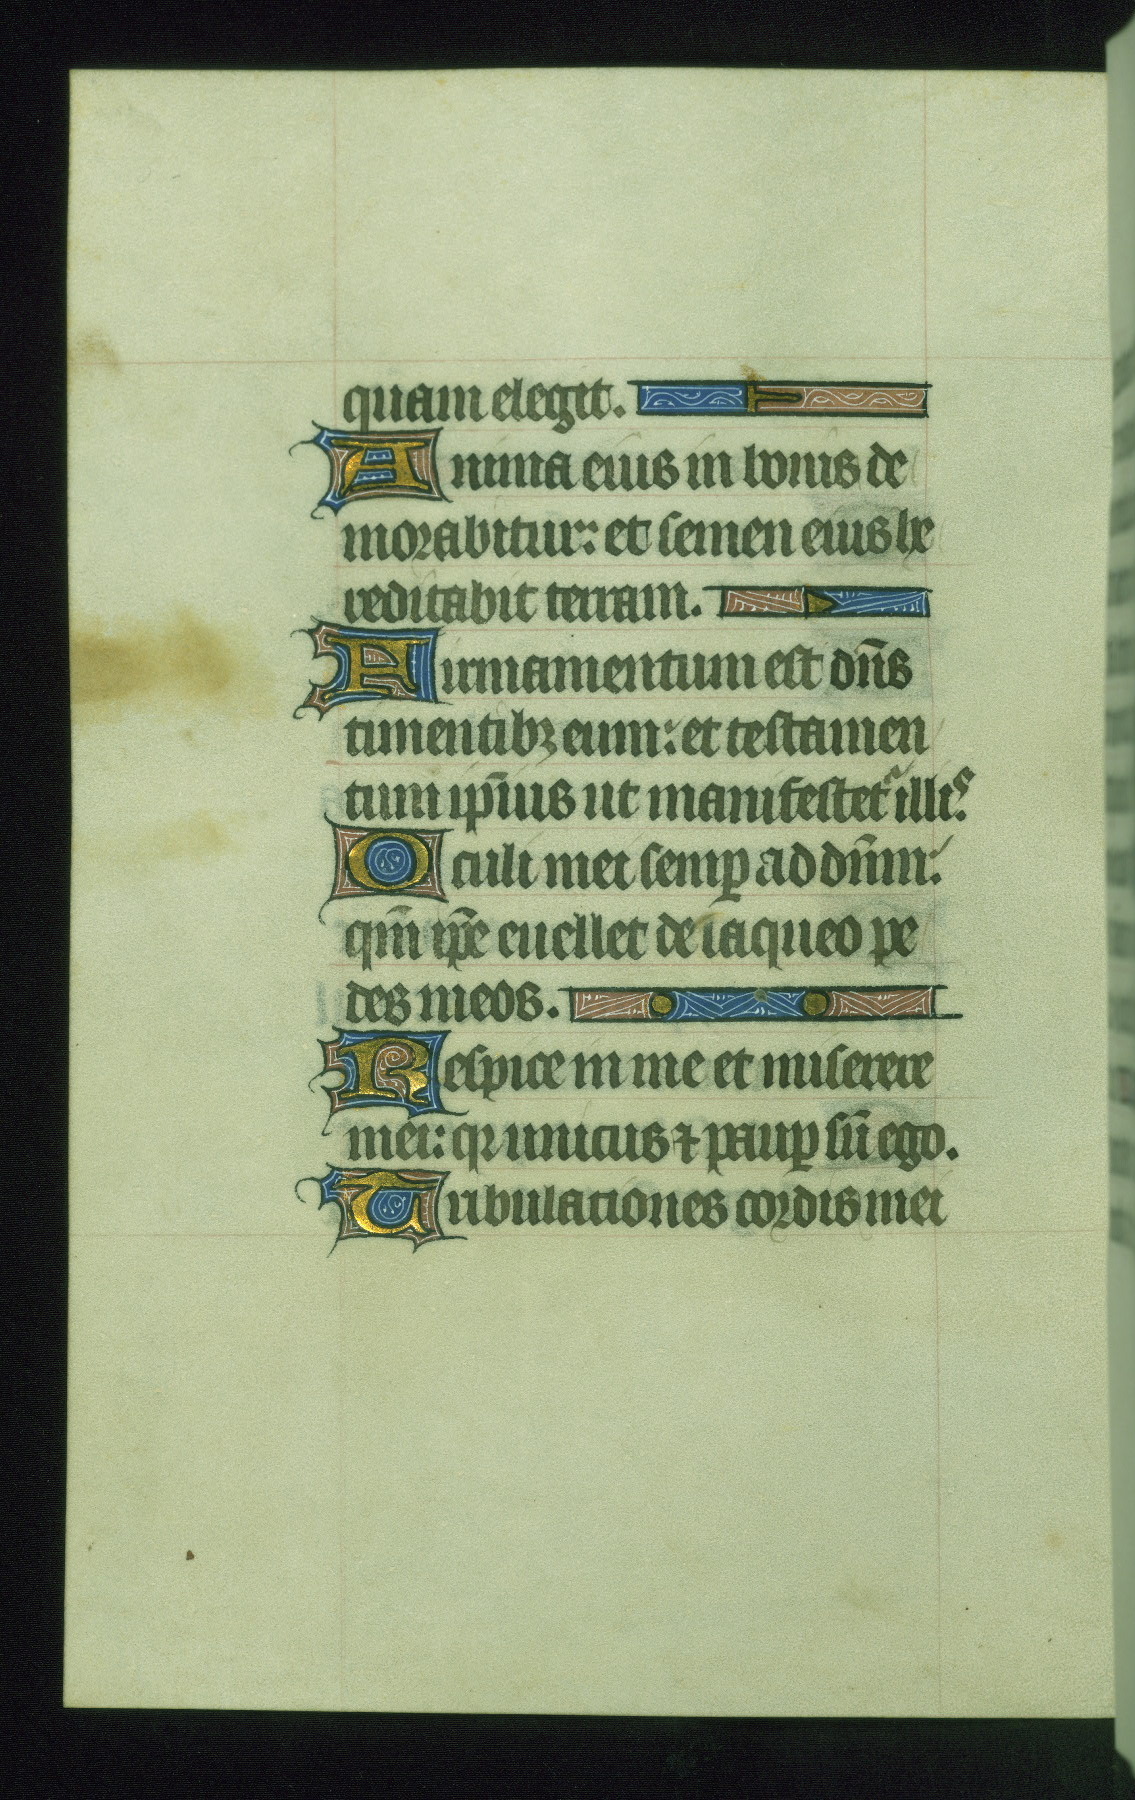 quam elegit.
Anima eius in bonis de
morabitur: et semen eius he
reditabit terram.
Firmamentum est dn̄s
timentibꝫ eum: et testamen
tum ip̄ius ut manifestetᷣ illis.
Oculi mei semꝑ ad dn̄m:
qm̄ ip̄e euellet de laqueo pe
des meos.
Respice in me et miserere
mei: qꝛ unicus ⁊ pauꝑ sū ego.
Tribulationes cordis mei